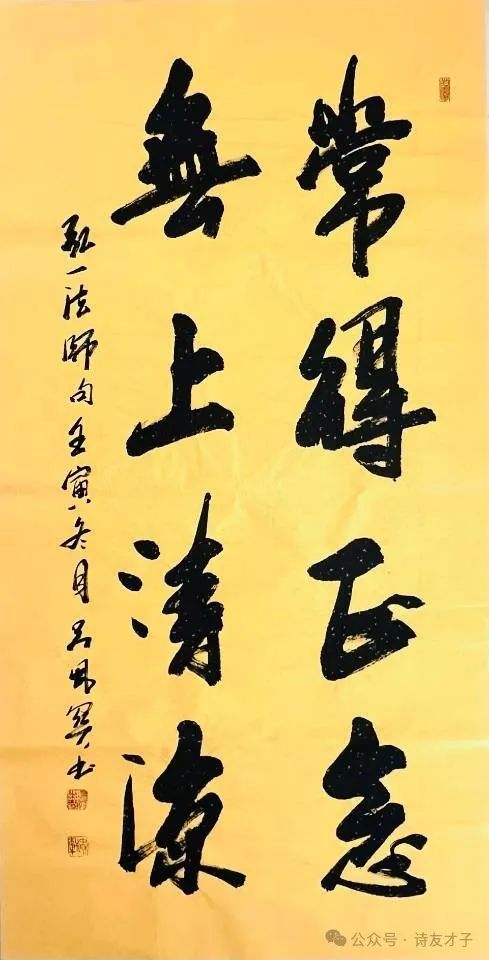 常得正念
無上清涼
弘一法師句壬寅冬月呂書
公众号 · 诗友才子